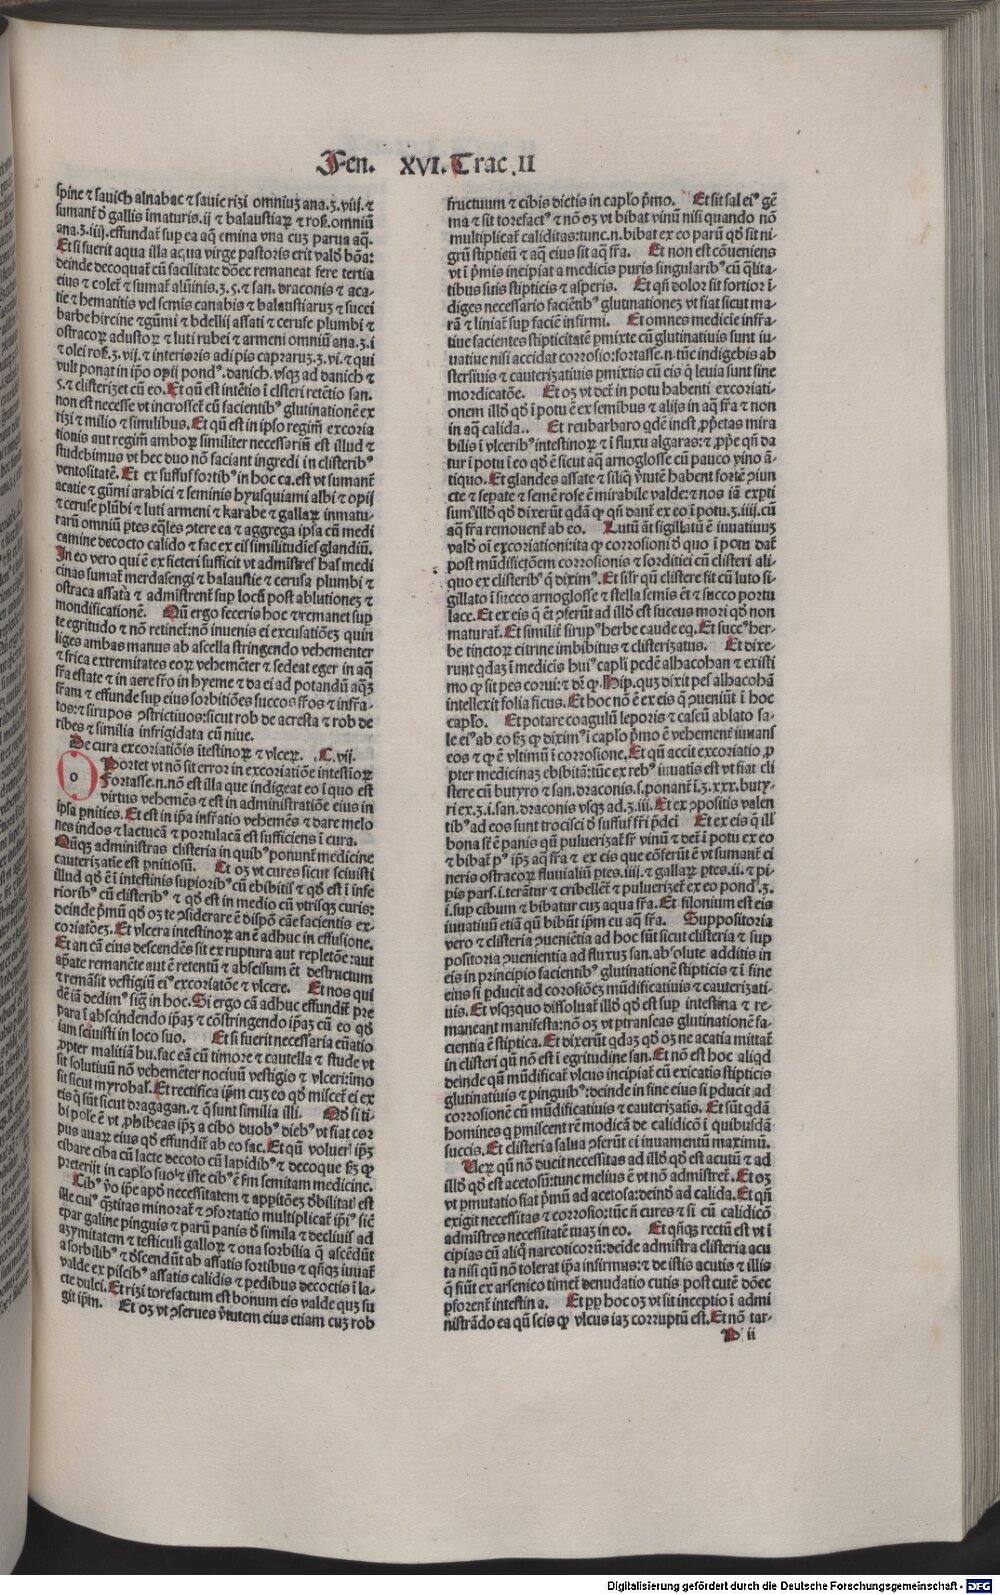 Fen. XVI. Trac. II
spine ⁊ sauich alnabac ⁊ sauic rizi omniuʒ ana.ʒ.viij.⁊
sumant̃ d̃ gallis ĩmaturis.ij ⁊ balaustiaꝝ ⁊ roſ. omniũ
ana.ʒ.iiij. effundat̃ sup ea aq̃ emina vna cuʒ parua aq̃.
Et si fuerit aqua illa acqua virge pastoris erit vald̃ bõa:
deinde decoquat̃ cũ facilitate dõec remaneat fere tertia
eius ⁊ colet̃ ⁊ sumat̃ alũinis.ʒ.5.⁊ san. draconis ⁊ aca-
tie ⁊ hematitis vel semis canabis ⁊ balaustiaruʒ ⁊ succi
barbe hircine ⁊ gũmi ⁊ bdellij assati ⁊ ceruse plumbi ⁊
ostracoꝝ adustoꝝ ⁊ luti rubei ⁊ armeni omniũ ana.ʒ.i
⁊ olei roſ.ʒ.vij.⁊ interioris adipis capraruʒ.ʒ.vi.⁊ qui
vult ponat in ip̃o opij pondꝰ.danich.vsqʒ ad danich ⁊
5.⁊ clisterizet cũ eo. Et qũ est intẽtio ĩ clisteri retẽtio san.
non est necesse vt incrosset̃ cũ facientibꝰ glutinationẽ ex
rizi ⁊ milio ⁊ similibus. Et qũ est in ipso regim̃ excoria
tionis aut regim̃ amboꝝ similiter necessariũ est illud ⁊
studebimus vt hec duo nõ faciant ingredi in clisteribꝰ
ventositatẽ. Et ex suffuf fortibꝰ in hoc ca. est vt sumant̃
acatie ⁊ gũmi arabici ⁊ seminis hyusquiami albi ⁊ opij
⁊ ceruse plũbi ⁊ luti armeni ⁊ karabe ⁊ gallaꝝ inmatu-
rarũ omniũ p̃tes eq̃les ꝯtere ea ⁊ aggrega ipsa cũ medi
camine decocto calido ⁊ fac ex eis similitudĩes glandiũ.
In eo vero qui ẽ ex fieri sufficit vt admĩstres has medi
cinas sumat̃ merdasengi ⁊ balaustie ⁊ cerusa plumbi ⁊
ostraca assata ⁊ admĩstrent̃ sup locũ post ablutionez ⁊
mondificationẽ. Qũ ergo feceris hoc ⁊ remanet sup
te egritudo ⁊ nõ retinet̃: nõ inuenis ei excusatiõez quin
liges ambas manus ab ascella stringendo vehementer
⁊ frica extremitates eoꝝ vehemẽter ⁊ sedeat eger in aq̃
fr̃a estate ⁊ in aere fr̃o in hyeme ⁊ da ei ad potandũ aq̃ʒ
fr̃am ⁊ effunde sup eius sorbitiões succos fr̃os ⁊ infr̃a-
tos: ⁊ sirupos ꝯstrictiuos: sicut rob de acresta ⁊ rob de
ribes ⁊ similia infrigidata cũ niue.
De cura excoriatiõis ĩtestinoꝝ ⁊ vlceꝝ. C. vij.
Oportet vt nõ sit error in excoriatiõe intestĩoꝝ
Fortasse.n.nõ est illa que indigeat eo ĩ quo est
virtus vehemẽs ⁊ est in administratiõe eius in
ipsa p̃nities. Et est in ip̃a infr̃atio vehemẽs ⁊ dare melo
nes indos ⁊ lactucã ⁊ portulacã est sufficiens ĩ cura.
Qũqʒ administras clisteria in quibꝰ ponunt̃ medicine
cauterizatĩe est p̃nitiosũ. Et oʒ vt cures sicut sciuisti
illud qd̃ ẽ ĩ intestinis supioribꝰ cũ ebibitis ⁊ qd̃ est ĩ infe
rioribꝰ cũ clisteribꝰ ⁊ qd̃ est in medio cũ vtrisqʒ curis:
deinde p̃mũ qd̃ oʒ te ꝯsiderare ẽ dispõ cãe facientis ex-
coriatõez. Et vlcera intestinoꝝ an ẽ adhuc in effusione.
Et an cã eius descendẽs sit ex ruptura aut repletõe: aut
ap̃ate remanẽte aut ẽ retentũ ⁊ abscisum ẽt destructum
⁊ remãsit vestigiũ eiꝰ excoriatõe ⁊ vlcere. Et nos qui
dẽ iã dedimꝰ sig̃ in hoc. Si ergo cã adhuc effundit̃ pre
para ĩ abscindendo ip̃aʒ ⁊ cõstringendo ip̃aʒ cũ eo qd̃
iam sciuisti in loco suo. Et si fuerit necessaria eũatio
ꝓpter malitiã hu. fac eã cũ timore ⁊ cautella ⁊ stude vt
sit solutiuũ nõ vehemẽter nociuũ vestigio ⁊ vlceri: imo
sit sicut myrobal̃. Et rectifica ip̃m cuʒ eo qd̃ miscet̃ ei ex
eis q̃ sũt sicut dragagan. ⁊ q̃ sunt similia illi. Qd̃ si ti-
bi pole ẽ vt ꝓhibeas ip̃ʒ a cibo duobꝰ diebꝰ vt fiat cor
pus auaꝝ eius qd̃ effundit̃ ab eo fac. Et qũ voluer̃ ip̃ʒ
cibare ciba cũ lacte decoto cũ lapidibꝰ ⁊ decoque ſʒ qꝫ
preterijt in caplo suoꝛ ⁊ iste cibꝰ ẽ ſm semitam medicine.
Cibꝰ ṽo ip̃e apd̃ necessitatem ⁊ appitõeʒ d̃bilitatꝭ est
ille cuiꝰ q̃titas minorat̃ ⁊ ꝯfortatio multiplicat̃ ip̃iꝰ siẽ
epar galine pinguis ⁊ parũ panis d̃ simila ⁊ decliuis ad
aʒymitatem ⁊ testiculi galloꝝ ⁊ oua sorbilia q̃ ascẽdũt
a sorbilibꝰ ⁊ d̃scendũt ab assatis fortibus ⁊ qñqʒ iuuat̃
valde ex piscibꝰ assatis calidis ⁊ pedibus decoctis ĩ la-
cte dulci. Et rizi torefactum est bonum eis valde quʒ su
git ip̃m. Et oʒ vt ꝯserues ṽtutem eius etiam cuʒ rob
fructuum ⁊ cibis dictis in caplo p̃mo. Et sit sal eiꝰ gẽ
ma ⁊ sit torefactꝰ ⁊ nõ oʒ vt bibat vinũ nisi quando nõ
multiplicat̃ caliditas: tunc.n.bibat ex eo parũ qd̃ sit ni-
grũ stipticũ ⁊ aq̃ eius sit aq̃ fr̃a. Et non est cõueniens
vt ĩ p̃mis incipiat a medicis puris singularibꝰ cũ q̃lita-
tibus suis stipticis ⁊ asperis. Et qñ dolor sit fortior ĩ-
diges necessario faciẽtibꝰ glutinationez vt fiat sicut ma-
rã ⁊ liniat̃ sup faciẽ infirmi. Et omnes medicie infr̃a-
tiue facientes stipticitatẽ p̃mixte cũ glutinatiuis sunt iu-
uatiue nisi accidat corrosio: fortasse.n.tũc indigebis ab
stersiuis ⁊ cauterizatiuis pmixtis cũ eis q̃ leuia sunt sine
mordicatõe. Et oʒ vt det̃ in potu habenti excoriati-
onem illd̃ qd̃ ĩ potu ẽ ex semibus ⁊ alijs in aq̃ fr̃a ⁊ non
in aq̃ calida.. Et reubarbaro qdẽ inest ꝓp̃etas mira
bilis ĩ vlceribꝰ intestinoꝝ ⁊ ĩ fluxu algaras: ⁊ ꝓp̃e qñ da
tur ĩ potu ĩ eo qd̃ ẽ sicut aq̃ arnoglosse cũ pauco vino ã-
tiquo. Et glandes assate ⁊ siliq̃ ṽtutẽ habent fortẽ ꝯiun
cte ⁊ sepate ⁊ semẽ rose ẽ mirabile valde: ⁊ nos iã exp̃ti
sumꝰ illd̃ qd̃ dixerũt qdã qꝫ qñ dant̃ ex eo ĩ potu.ʒ.iiij. cũ
aq̃ fr̃a remouent̃ ab eo. Lutũ ãt sigillatũ ẽ iuuatiuuʒ
vald̃ oĩ excoriationi: ita qꝫ corrosioni d̃ quo ĩ potu dat̃
post mũdificatõem corrosionis ⁊ sorditiei cũ clisteri ali-
quo ex clisteribꝰ q̃ diximꝰ. Et sil̃r qũ clistere fit cũ luto si-
gillato ĩ succo arnoglosse ⁊ stella semis ẽt ⁊ succo portu
lace. Et ex eis q̃ ẽt ꝯferũt ad illd̃ est succus mori qd̃ non
maturat̃. Et similit̃ sirupꝰ herbe caude eq̃. Et succꝰ her-
be tinctoꝝ citrine imbibitus ⁊ clisterizatus. Et dixe-
runt qdaʒ ĩ medicis huiꝰ capli pedẽ alhacohan ⁊ existi
mo qꝫ sit pes corui: ⁊ dr̃ qꝫ. Hip. quʒ dixit pes alhacohã
intellexit folia ficus. Et hoc nõ ẽ ex eis q̃ ꝯueniũt ĩ hoc
caplo. Et potare coagulũ leporis ⁊ casẽũ ablato sa-
le eiꝰ ab eo ſʒ qꝫ diximꝰ ĩ caplo p̃mo ẽ vehement̃ iuuans
eos ⁊ qꝫ ẽ vltimũ ĩ corrosione. Et qũ accit excoriatio ꝓ
pter medicinaʒ ebibitã: tũc ex rebꝰ iuuatis est vt fiat cli
stere cũ butyro ⁊ san. draconis.s. ponant̃ ĩ.ʒ.xxx. buty-
ri ex.ʒ.i. san. draconis vsqʒ ad.ʒ.iii. Et ex ꝯpositis valen
tibꝰ ad eos sunt trocisci d̃ suffuf fr̃i p̃dci Et ex eis q̃ ill̃
bona sẽt ẽ panis qũ puluerizat̃ sr̃ vinũ ⁊ det̃ ĩ potu ex eo
⁊ bibat̃ pꝰ ip̃ʒ aq̃ fr̃a ⁊ ex eis que cõferũt ẽ vt sumant̃ ci
neris ostracoꝝ fluuialiũ ptes.iiij. ⁊ gallaꝝ ptes.ii. ⁊ pi-
pis pars.i. terãtur ⁊ cribellet̃ ⁊ puluerizet̃ ex eo pondꝰ.ʒ.
i. sup cibum ⁊ bibatur cuʒ aqua fr̃a. Et filonium est eis
iuuatiuũ etiã qũ bibũt ip̃m cu aq̃ fr̃a. Suppositoria
vero ⁊ clisteria ꝯueniẽtia ad hoc sũt sicut clisteria ⁊ sup
positoria ꝯuenientia ad fluxuʒ san. absolute additis in
eis in principio facientibꝰ glutinationẽ stipticis ⁊ ĩ fine
eius si p̃ducit ad corosiõeʒ mũdificatiuis ⁊ cauterizati-
uis. Et vsqʒquo dissoluat̃ illd̃ qd̃ est sup intestina ⁊ re-
maneant manifesta: nõ oʒ vt ptranseas glutinationẽ fa-
cientia ẽ stiptica. Et dixerũt qdaʒ qd̃ oʒ ne acatia mittat̃
in clisteri qũ nõ est ĩ egritudine san. Et nõ est hoc aliqd
deinde qũ mũdificat̃ vlcus incipiat̃ cũ exicatis stipticis
glutinatiuis ⁊ pinguibꝰ: deinde in fine eius si p̃ducit̃ ad
corrosionẽ cũ mũdificatiuis ⁊ cauterizatis. Et sũt qdã
homines q p̃miscent rẽ modicã de calidicõ ĩ quibusdã
succis. Et clisteria salua ꝯferũt ei iuuamentũ maximũ.
Veꝝ qũ nõ ducit necessitas ad illd̃ qd̃ est acutũ ⁊ ad
illd̃ qd̃ est acetosũ: tunc melius ẽ vt nõ admĩstret̃. Et oʒ
vt pmutatio fiat p̃mũ ad acetosa: deĩnd̃ ad calida. Et qñ
exigit necessitas ⁊ corrosio: tũc ñ cures ⁊ si cũ calidicõ
admĩstres necessitatẽ tuaʒ in eo. Et qñqʒ rectũ est vt ĩ
cipias cũ aliq̃ narcoticorũ: deĩde admĩstra clisteria acu
ta nisi qũ nõ tolerat ip̃a infirmus: ⁊ de istis acutis ⁊ illis
q̃ fiũt ex arsenico timet̃ denudatio cutis post cutẽ dõec
pforent̃ intestina. Et pp̃ hoc oʒ vt sit inceptio ĩ admi
nistrãdo ea qũ scis qꝫ vlcus iaʒ corruptũ est. Et nõ tar-
P ii
Digitalisierung gefördert durch die Deutsche Forschungsgemeinschaft - DFG